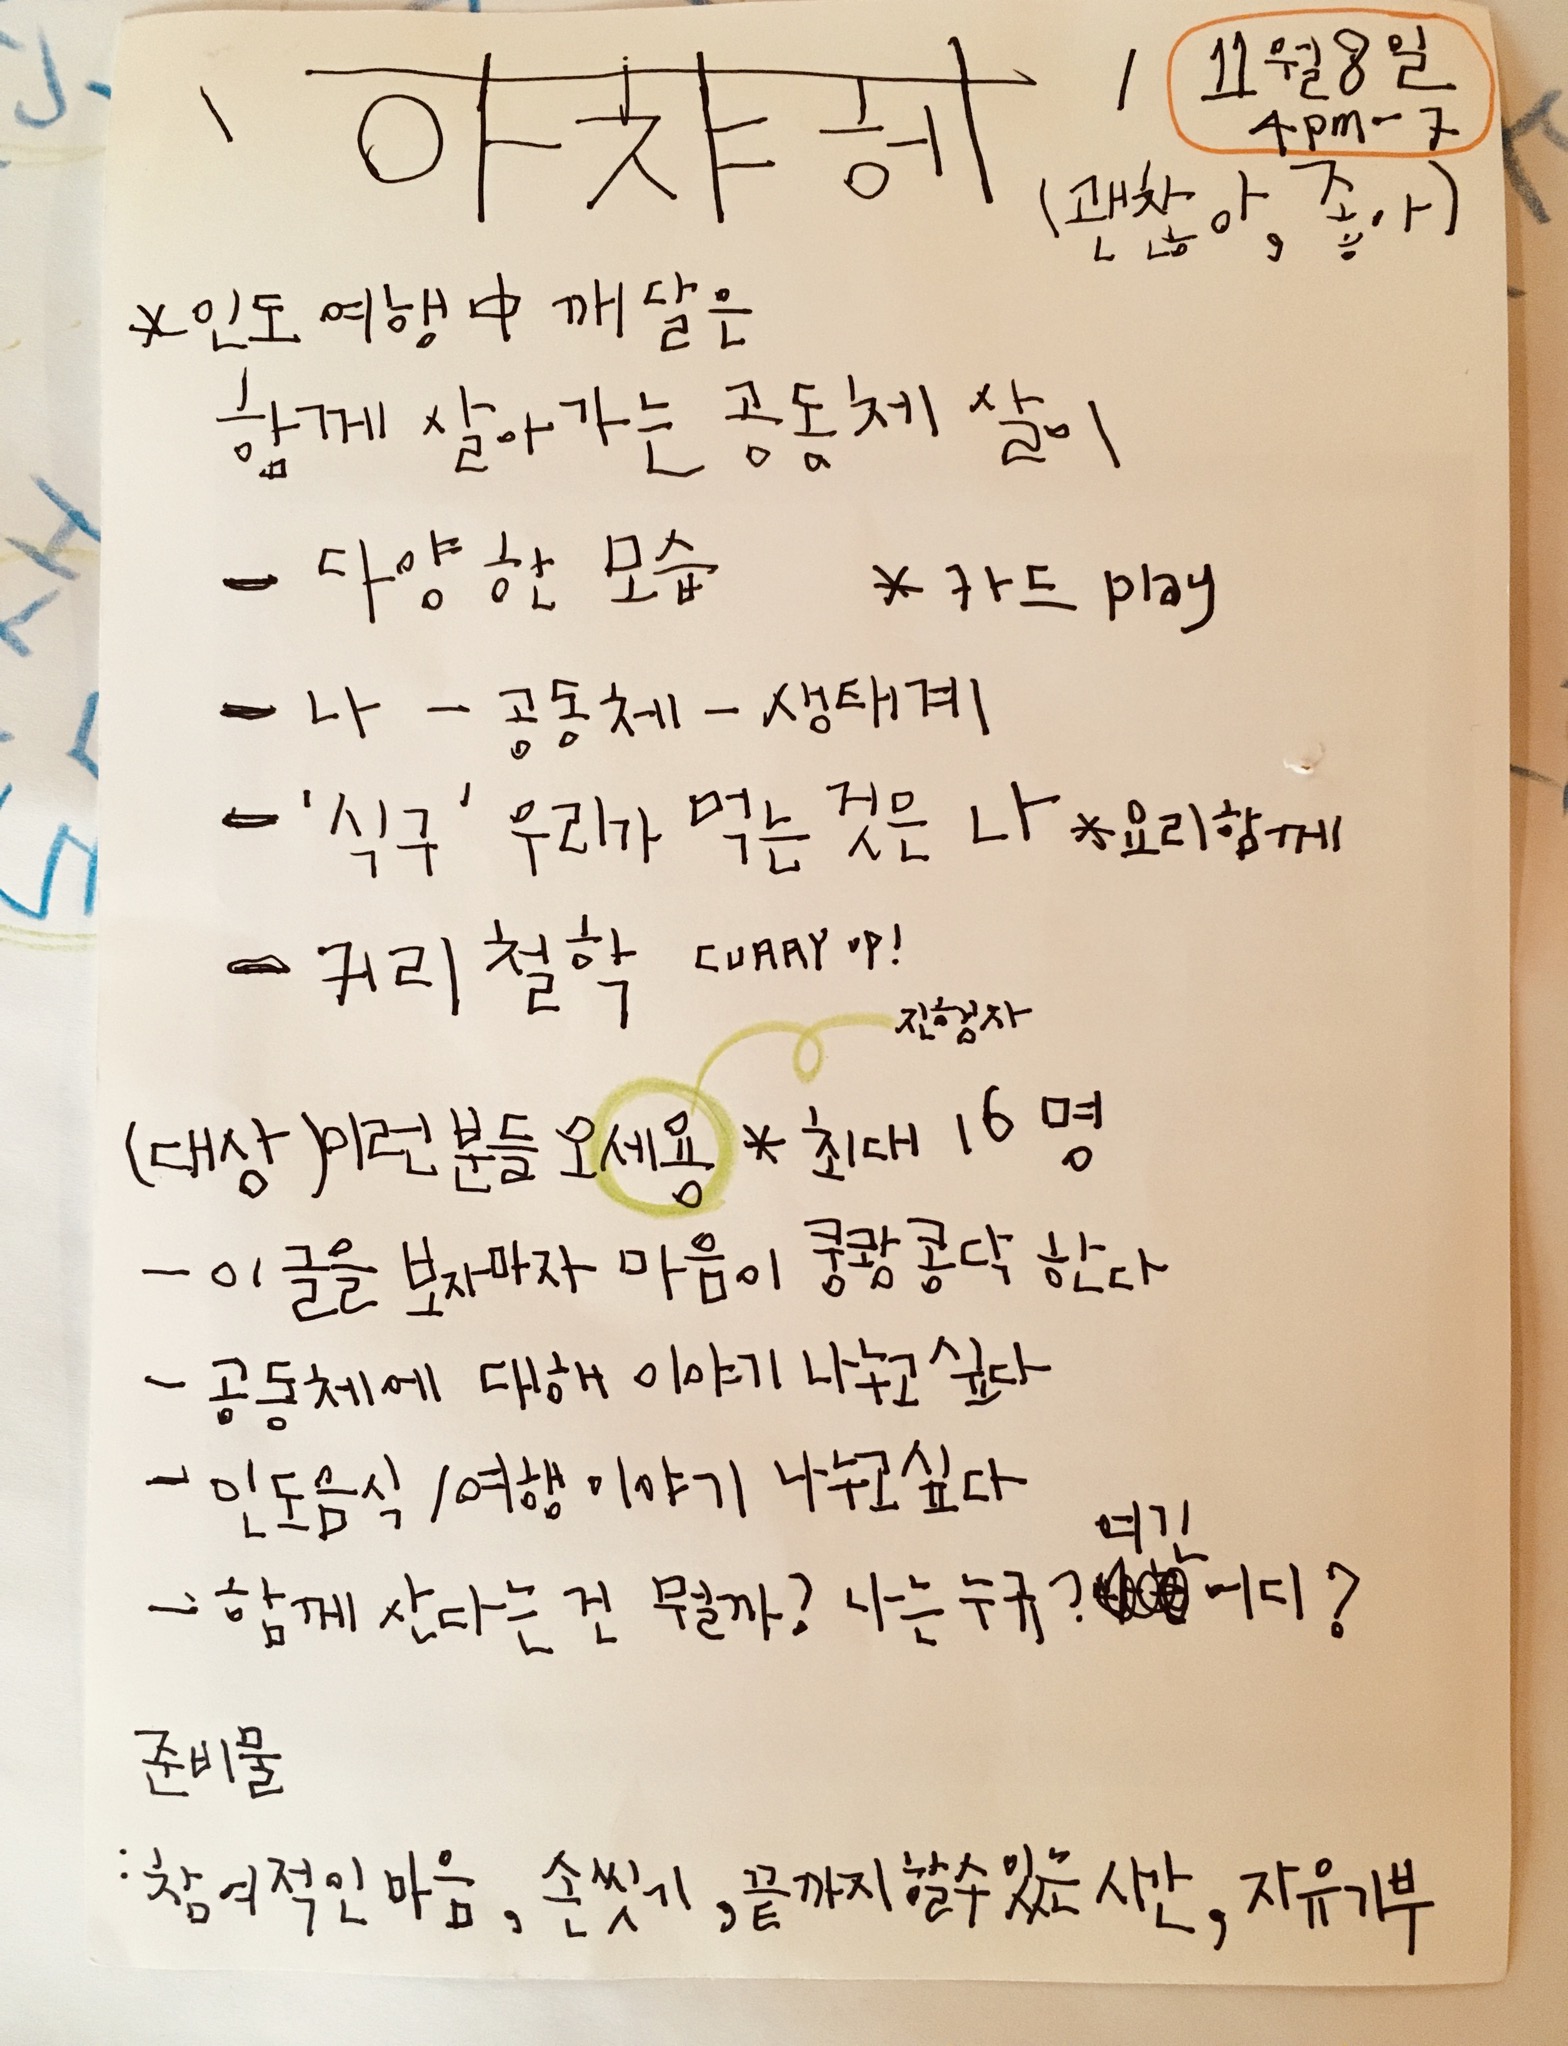 ' 아차헤 '
11월 8일
4pm - 7
(괜찮아, 좋아)
*인도 여행 中 깨달은
함께 살아가는 공동체 살이
- 다양한 모습 * 카드 play
- 나 - 공동체 - 생태계
- '식구' 우리가 먹는 것은 나 *요리함께
- 커리 철학 CURRY UP!
진행자
(대상) 이런 분들 오세용 * 최대 16명
- 이 글을 보자마자 마음이 쿵쾅콩닥 한다
- 공동체에 대해 이야기 나누고 싶다
- 인도음식 / 여행 이야기 나누고 싶다
여긴
- 함께 산다는 건 뭘까? 나는 누규? 어디?
준비물
: 참여적인 마음, 손씻기, 끝까지 할 수 있는 시간, 자유기부